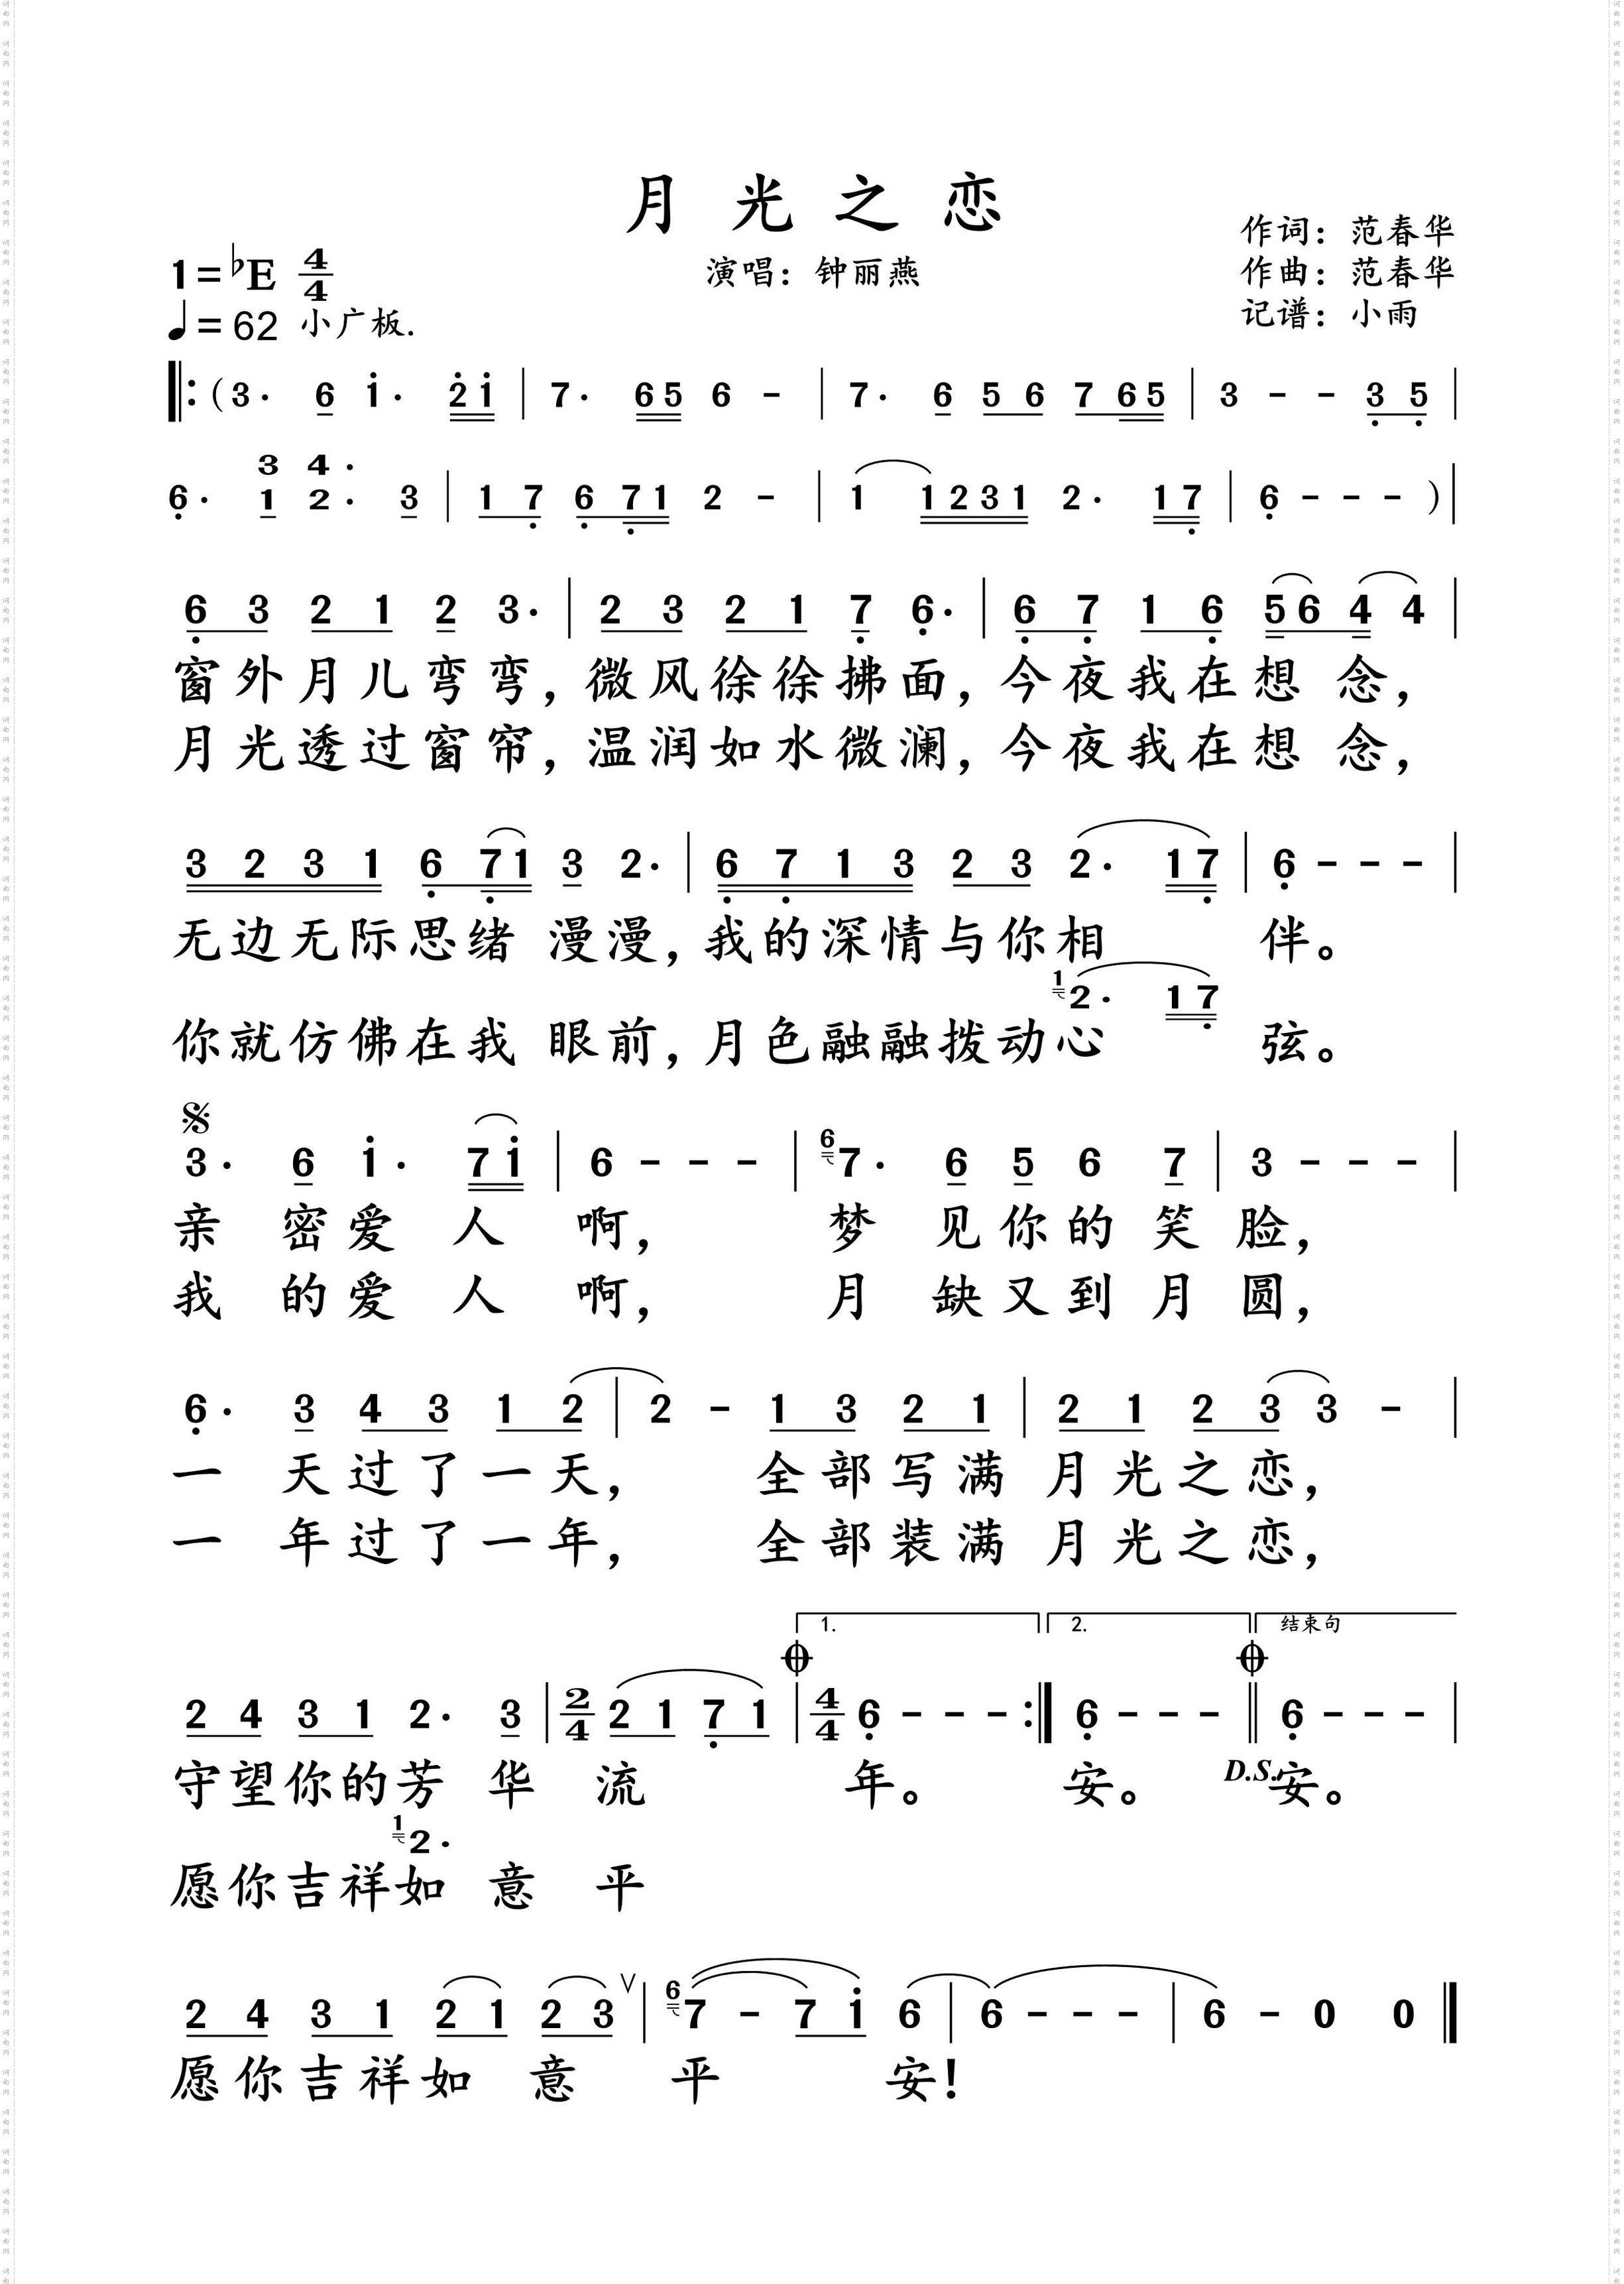 月光之恋
作词：范春华
1=♭E 4/4
演唱：钟丽燕
作曲：范春华
♩=62 小广板.
记谱：小雨
(3· 6 i· 2 i | 7· 6 5 6 - | 7· 6 5 6 7 6 5 | 3 - - 3 5 |
3 4·
6· 1 2· 3 | 1 7 6 7 1 2 - | 1 1 2 3 1 2· 1 7 | 6 - - - )|
6 3 2 1 2 3· | 2 3 2 1 7 6· | 6 7 1 6 5 6 4 4 |
窗外月儿弯弯，微风徐徐拂面，今夜我在想念，
月光透过窗帘，温润如水微澜，今夜我在想念，
3 2 3 1 6 7 1 3 2· | 6 7 1 3 2 3 2· 1 7 | 6 - - - |
无边无际思绪漫漫，我的深情与你相伴。
1 2· 1 7
你就仿佛在我眼前，月色融融拨动心弦。
3· 6 i· 7 i | 6 - - - | 6 7· 6 5 6 7 | 3 - - - |
亲密爱人啊，梦见你的笑脸，
我的爱人啊，月缺又到月圆，
6· 3 4 3 1 2 | 2 - 1 3 2 1 | 2 1 2 3 3 - |
一天过了一天，全部写满月光之恋，
一年过了一年，全部装满月光之恋，
1. 2. 结束句
2 4 3 1 2· 3 | 2/4 2 1 7 1 | 4/4 6 - - - :| 6 - - - || 6 - - - |
守望你的芳华流年。安。D.S.安。
1 2·
愿你吉祥如意平
2 4 3 1 2 1 2 3 V | 6 7 - 7 i 6 | 6 - - - | 6 - 0 0 ||
愿你吉祥如意平安！